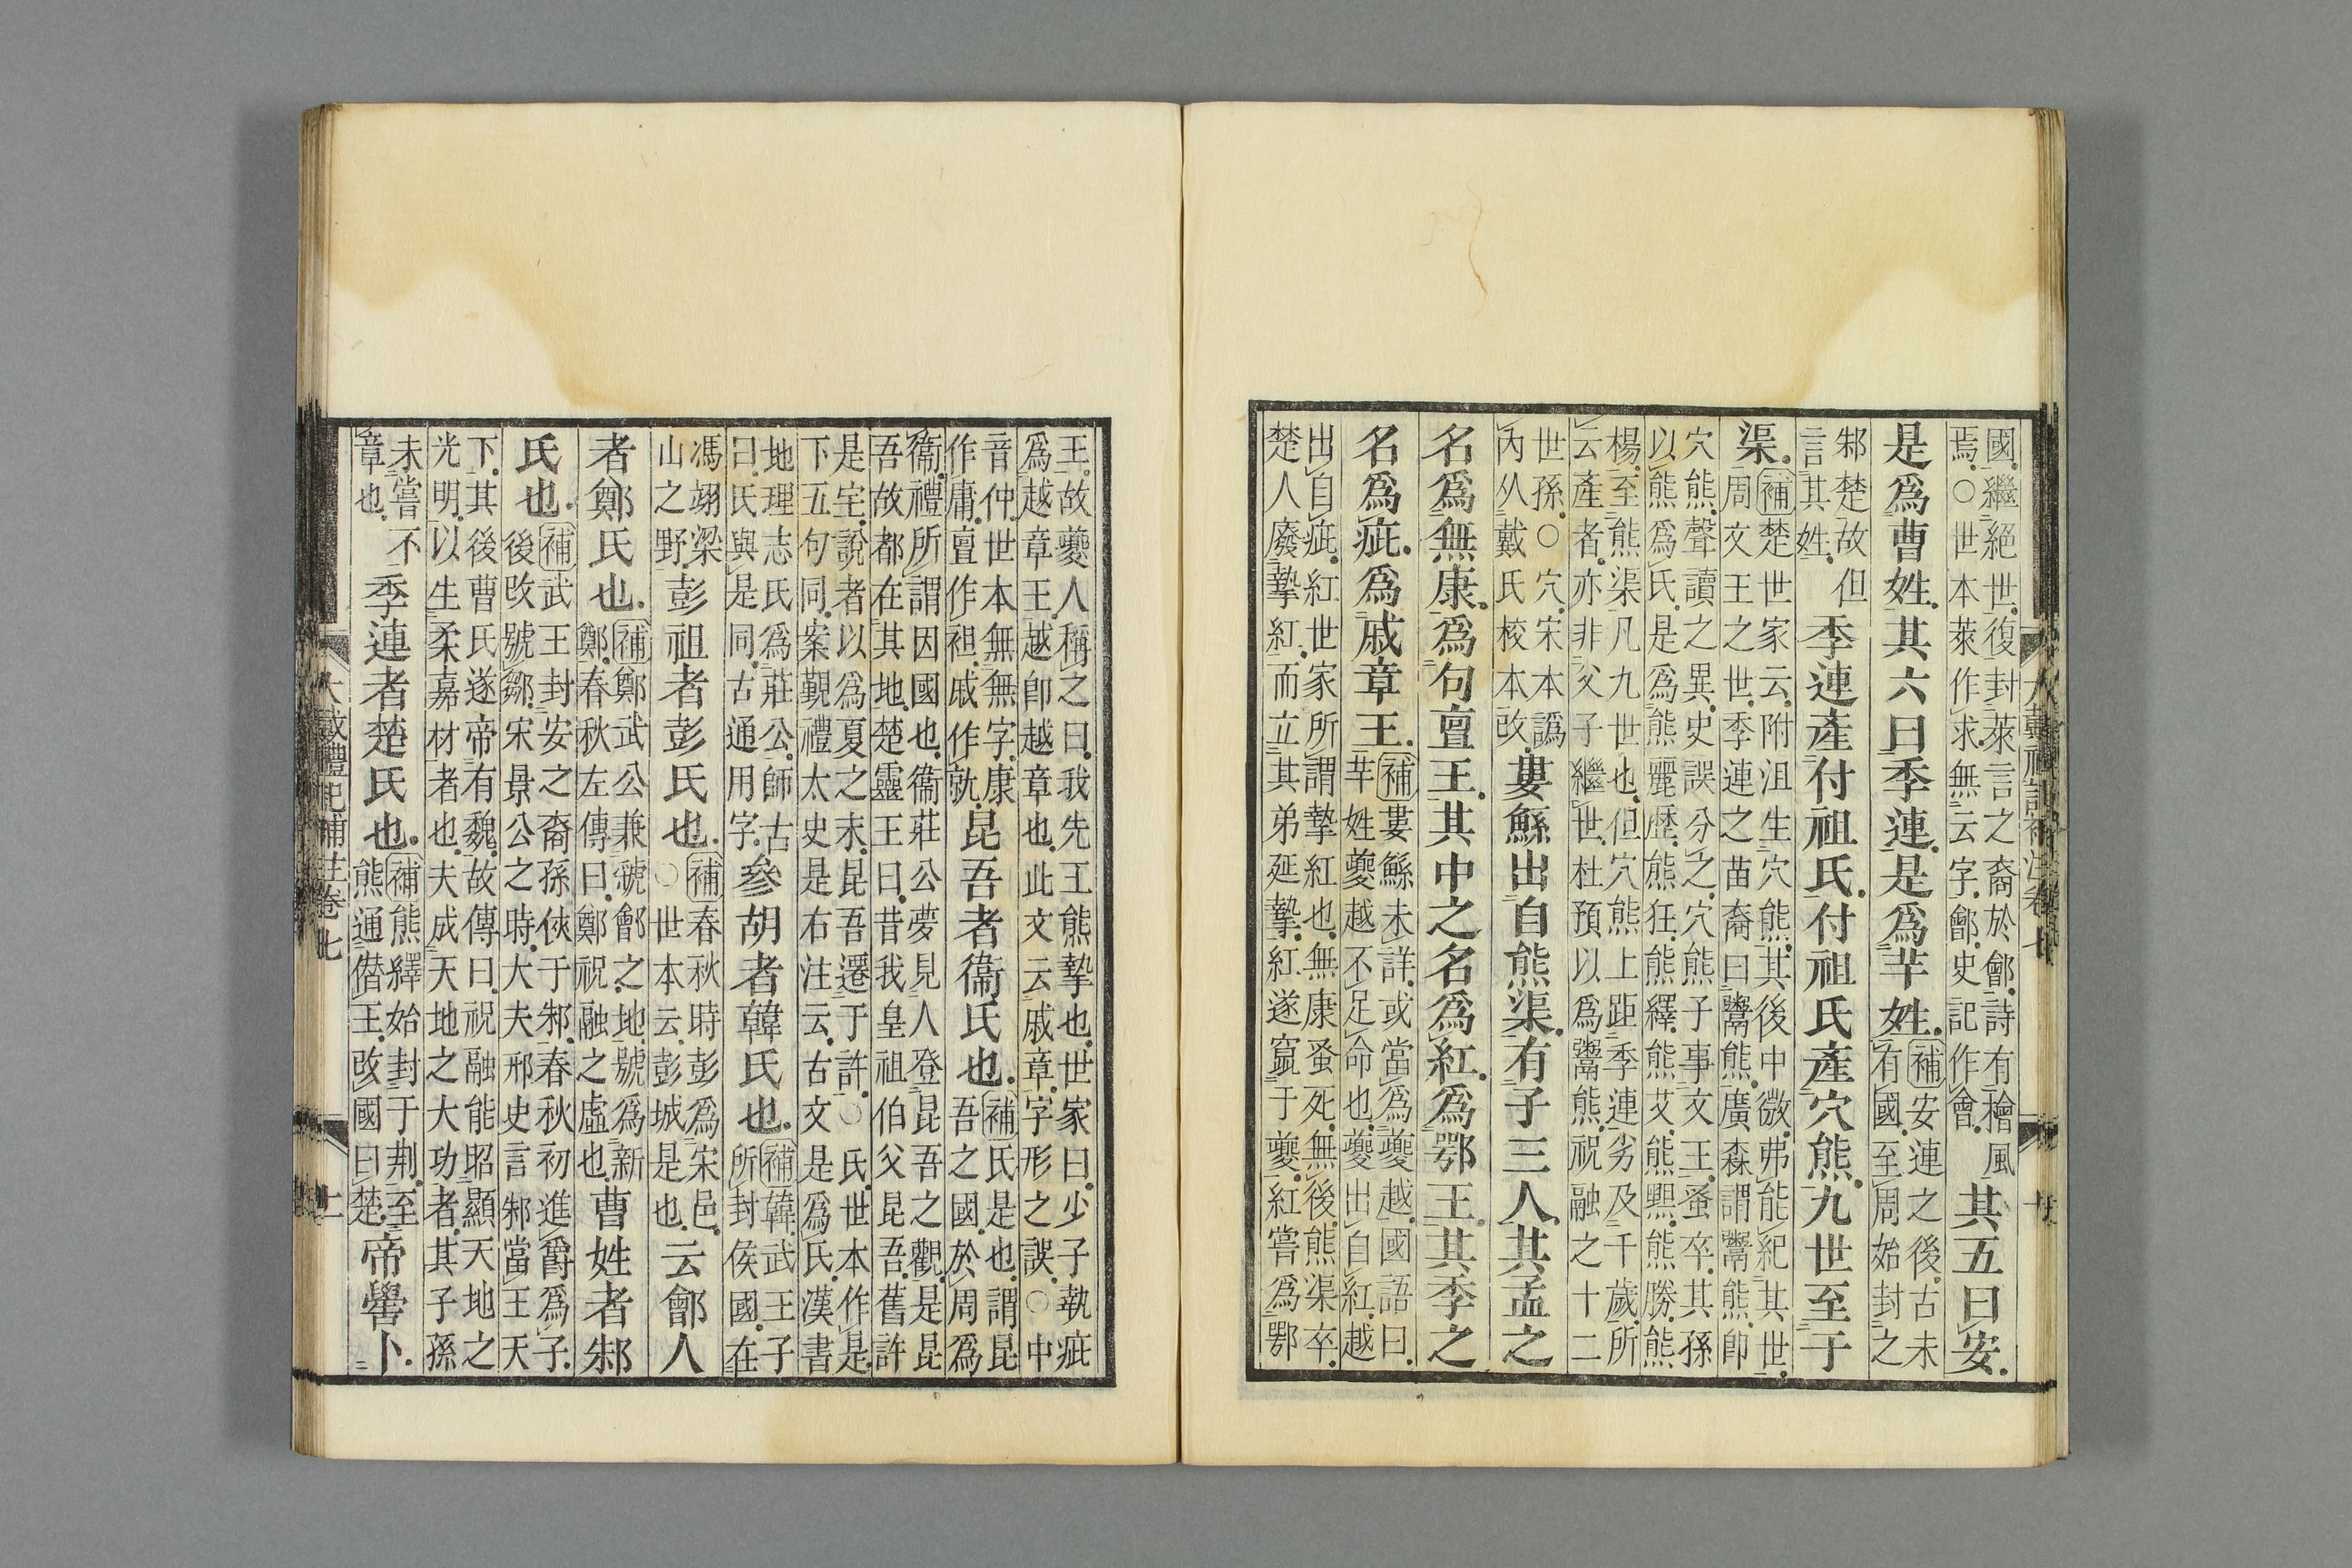 國繼絕世復封萊言之裔於鄶詩有檜風
焉○世本萊作求無云字鄶史記作會
其五曰安
是爲曹姓其六曰季連是爲芈姓
補安連之後古未
有國至周始封之
邾楚故但
言其姓
季連產付祖氏付祖氏產穴熊九世至于
渠
補楚世家云附沮生穴熊其後中微弗能紀其世
周文王之世季連之苗裔曰鬻熊廣森謂鬻熊卽
穴熊聲讀之異史誤分之穴熊子事文王蚤卒其孫
以熊爲氏是爲熊麗歷熊狂熊繹熊艾熊䵣熊勝熊
楊至熊渠凡九世也但穴熊上距季連劣及千歲所
云產者亦非父子繼世杜預以爲鬻熊祝融之十二
世孫○穴宋本譌
內从戴氏校本改
婁鯀出自熊渠有子三人其孟之
名爲無康爲句亶王其中之名爲紅爲鄂王其季之
名爲疵爲戚章王
補婁鯀未詳或當爲夔越國語曰
芈姓夔越不足命也夔出自紅越
出自疵紅世家所謂摯紅也無康蚤死無後熊渠卒
楚人廢摯紅而立其弟延摯紅遂竄于夔紅嘗爲鄂
王故夔人稱之曰我先王熊摯也世家曰少子執疵
爲越章王越卽越章也此文云戚章字形之誤○中
音仲世本無無字康
作庸亶作袒戚作就
昆吾者衞氏也
補氏是也謂昆
吾之國於周爲
衞禮所謂因國也衞莊公夢見人登昆吾之觀是昆
吾故都在其地楚靈王曰昔我皇祖伯父昆吾舊許
是宅說者以爲夏之末昆吾遷于許○氏世本作是
下五句同案觀禮太史是右注云古文是爲氏漢書
地理志氏爲莊公師古
曰氏與是同古通用字
參胡者韓氏也
補韓武王子
所封侯國在
馮翊梁
山之野
彭祖者彭氏也
補春秋時彭爲宋邑
○世本云彭城是也
云鄶人
者鄭氏也
補鄭武公兼虢鄶之地號爲新
鄭春秋左傳曰鄭祝融之虛也
曹姓者邾
氏也
補武王封安之裔孫俠于邾春秋初進爵爲子
後改號鄒宋景公之時大夫邢史言邾當王天
下其後曹氏遂帝有魏故傳曰祝融能昭顯天地之
光明以生柔嘉材者也夫成天地之大功者其子孫
未嘗不
章也
季連者楚氏也
補熊繹始封于荆至
熊通僭王改國曰楚
帝嚳卜
大戴禮記補注卷七